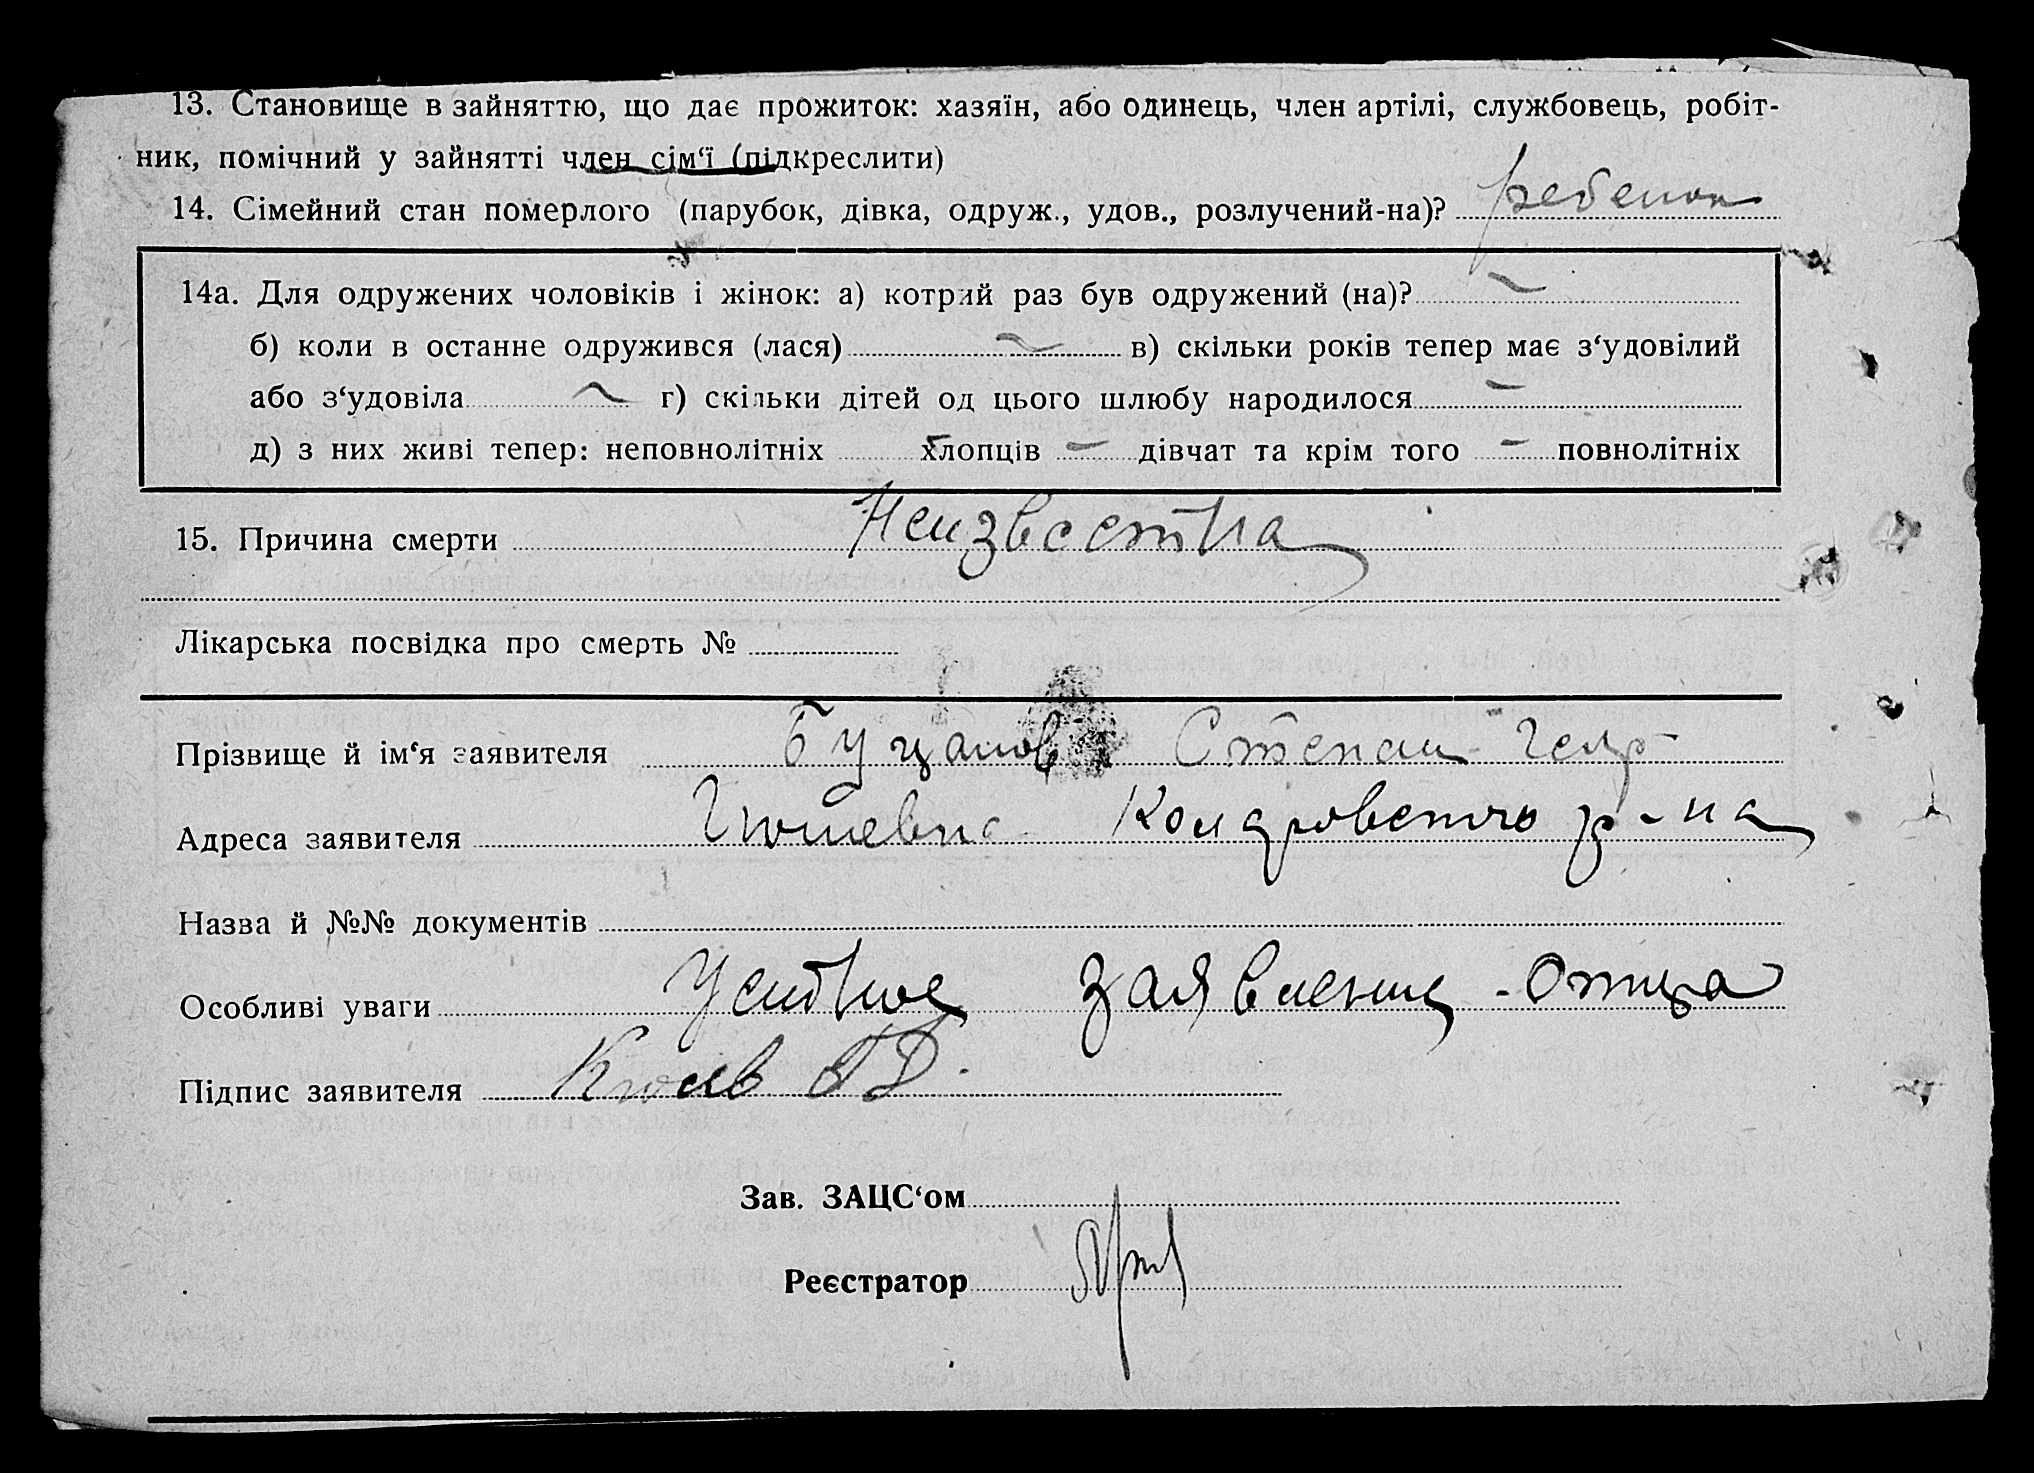 13. Становище в зайняттю, що дає прожиток: хазяїн, або одинець, член артілі, службовець, робіт-
ник, помічний у зайнятті член сім‘ї (підкреслити)
14. Сімейний стан померлого (парубок, дівка, одруж., удов., розлучений-на)? ребенок
14а. Для одружених чоловіків і жінок: а) котрий раз був одружений (на)? —
б) коли в останнє одружився (лася) — в) скільки років тепер має з‘удовілий
або з‘удовіла — г) скільки дітей од цього шлюбу народилося —
д) з них живі тепер: неповнолітніх — хлопців — дівчат та крім того — повнолітніх
15. Причина смерти Неизвестна
Лікарська посвідка про смерть №
Прізвище й ім‘я заявителя Буцанов Степан
Адреса заявителя р-на
Назва й №№ документів
Особливі уваги Устное заявление - Отца
Підпис заявителя
Зав. ЗАЦС‘ом
Реєстратор